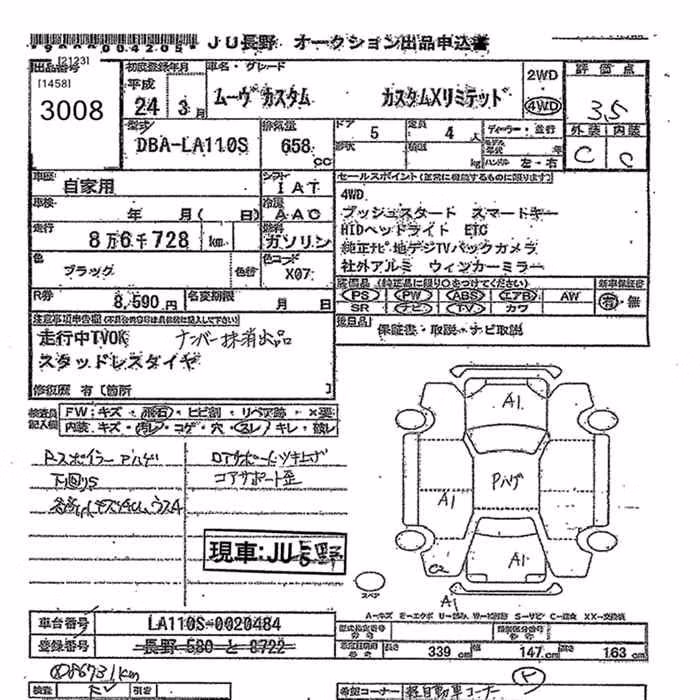 *9000004205*
JU長野 オークション出品申込書
出品番号 [2123]
[1458]
3008
初度登録年月
平成
24 3月
車名・グレード
ムーヴ カスタム カスタムXリミテッド
2WD
4WD
評価点
3.5
外装 内装
C C
型式
DBA-LA110S
排気量
658 cc
ドア 5
定員 4 人
形状
積載 kg
ディーラー・並行
モデル年式 年
ハンドル 左・右
車歴 自家用
シフト IAT
車検 年 月( 日)
冷房 AAC
走行 8万6千728 km
燃料 ガソリン
色 ブラック 色替
色コード X07
R券 8,590円
名変期限 月 日
セールスポイント(正常に機能するものに限ります)
4WD
プッシュスタート スマートキー
HIDヘッドライト ETC
純正ナビ 地デジTVバックカメラ
社外アルミ ウィンカーミラー
装備品 (純正品に限り○をつけてください)
PS PW ABS エアB AW
SR ナビ TV カワ
新車保証書
有・無
後日品 保証書・取説・ナビ取説
注意事項申告欄
走行中TVOK ナンバー抹消出品
スタッドレスタイヤ
修復歴 有 [箇所
検査員記入欄
FW:キズ・飛石・ヒビ割・リペア跡・×要
内装:キズ・汚レ・コゲ・穴・スレ・キレ・破レ
Rスポイラー Pハゲ
下回りS
コアサポートツキ上げ
コアサポート歪
現車:JU長野
A1
Pハゲ
A1
A1
C2
A1
スペア
A-キズ E-エクボ U-凹み W-補修跡 S-サビ C-腐食 XX-交換済
車台番号 LA110S-0020484
登録番号 長野 580 と 8722
型式指定番号
類別区分番号
長さ 339 cm
幅 147 cm
高さ 163 cm
86731km
検査
引き
希望コーナー 軽自動車コーナー